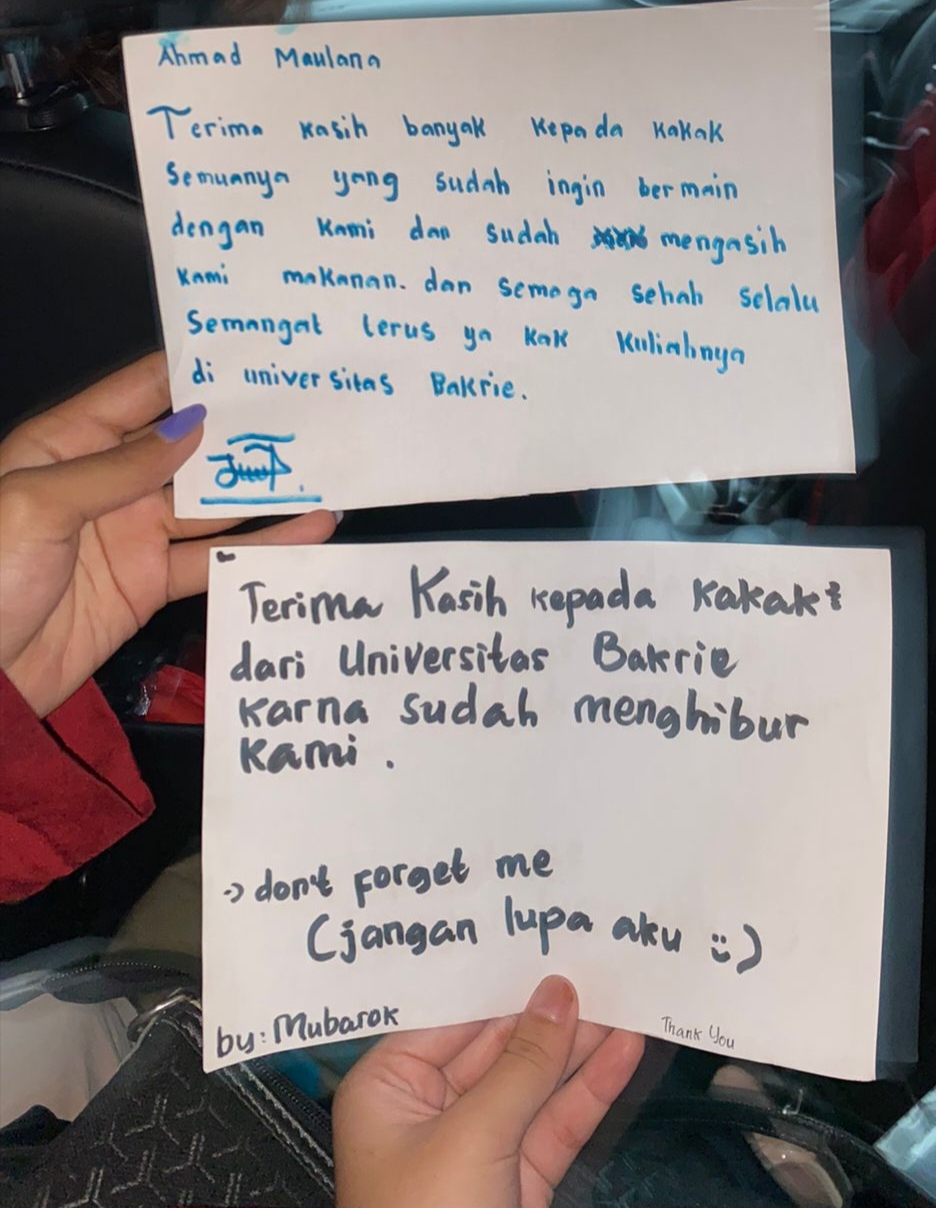 Ahmad Maulana
Terima kasih banyak kepada kakak
Semuanya yang sudah ingin bermain
dengan kami dan sudah mengasih
kami makanan. dan semoga sehah selalu
Semangat terus ya kak kuliahnya
di universitas Bakrie.
Terima Kasih kepada kakak²
dari Universitas Bakrie
karna sudah menghibur
kami.
→ don't forget me
(jangan lupa aku :))
by: Mubarok
Thank You